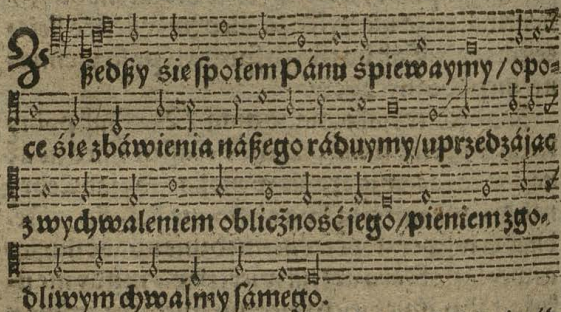 Zßedßy śie społem Pánu śpiewaymy / opo⸗
ce śie zbáwienia náßego ráduymy/uprzedzáiąc
z wychwaleniem obliczność jego/pieniem zgo⸗
dliwym chwalmy sámego.